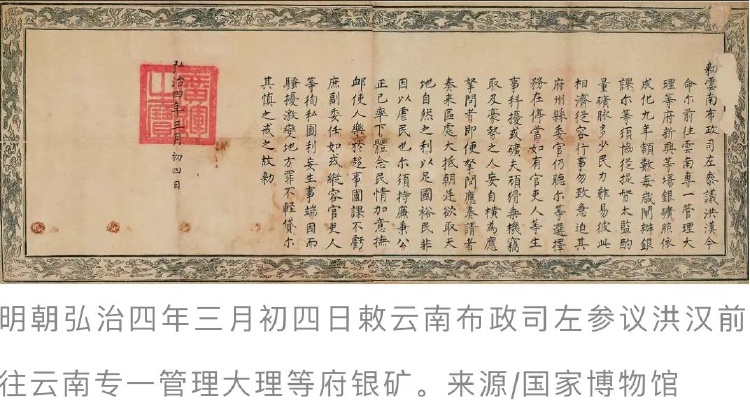 勅雲南布政司左叅議洪漢今
命尓前往雲南專一管理大
理等府新興等場銀礦照依
成化九年額數每歲閘辦銀
課尓等須協從提督太監酌
量礦脉多少民力難易彼此
相濟從容行事勿致急迫其
府州縣委官仍聽尓等選擇
務在停當如有官吏人等生
事科擾或礦夫頑猾乘機竊
取及豪勢之人妄自橫為應
拏問者即便拏問應奏請者
奏來區處大抵朝廷欲取天
地自然之利以足國裕民非
因以虐民也尓須持廉秉公
正己率下體念民情加意撫
卹使人樂於趨事國課不虧
庶副委任如或縱容官吏人
等徇私圖利妄生事端因而
騷擾激變地方罪不輕貸尓
其慎之戒之故勅
弘治四年三月初四日
廣運之寶
明朝弘治四年三月初四日敕云南布政司左参议洪汉前
往云南专一管理大理等府银矿。来源/国家博物馆